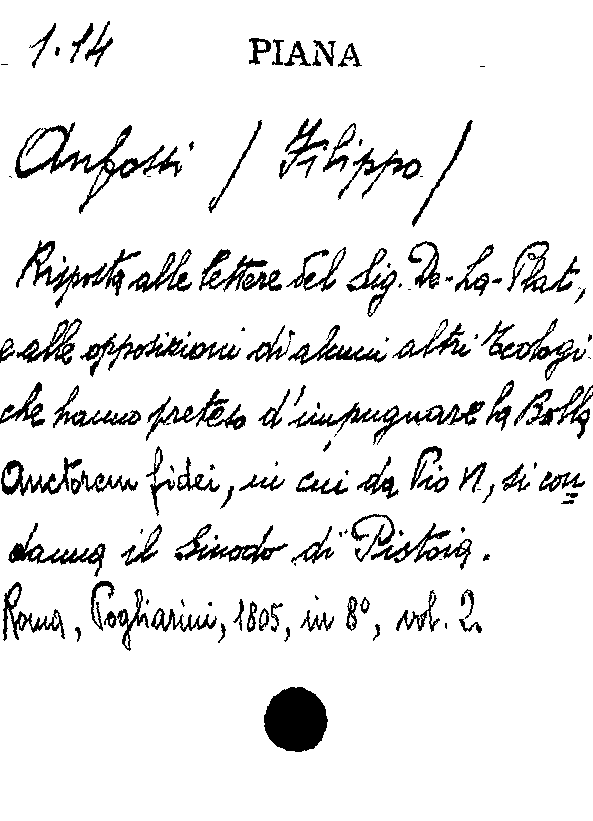 1.14 PIANA
Anfossi / Filippo /
Risposta alle lettere del Sig. De-La-Plat,
e alle opposizioni di alcuni altri Teologi
che hanno preteso d'impugnare la Bolla
Auctorem fidei, in cui da Pio VI, si con=
danna il Sinodo di Pistoia.
Roma, Pogliarini, 1805, in 8º, vol. 2.